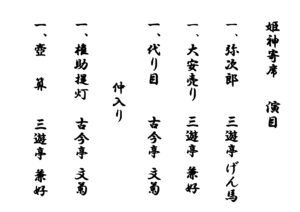 姫神寄席　演目
一、弥次郎　三遊亭 げん馬
一、大安売り　三遊亭 兼好
一、代り目　古今亭 文菊
仲入り
一、権助提灯　古今亭 文菊
一、壺算　三遊亭 兼好